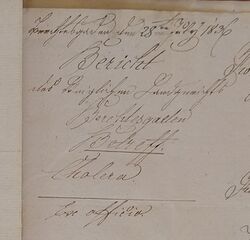 Berchtesgaden den 28ten July 1836
Bericht
des königlichen Landgerichts
Berchtesgaden
Betreff.
Cholera.
Ex officio